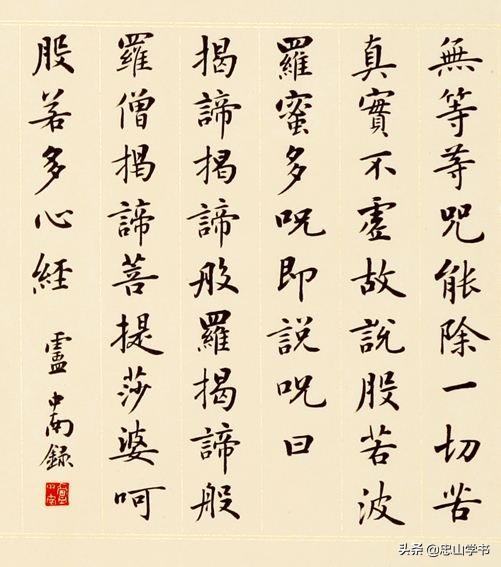 無等等咒能除一切苦
真實不虛故說般若波
羅蜜多呪即說呪曰
揭諦揭諦般羅揭諦般
羅僧揭諦菩提莎婆呵
般若多心經
盧中南錄
头条 @忠山学书